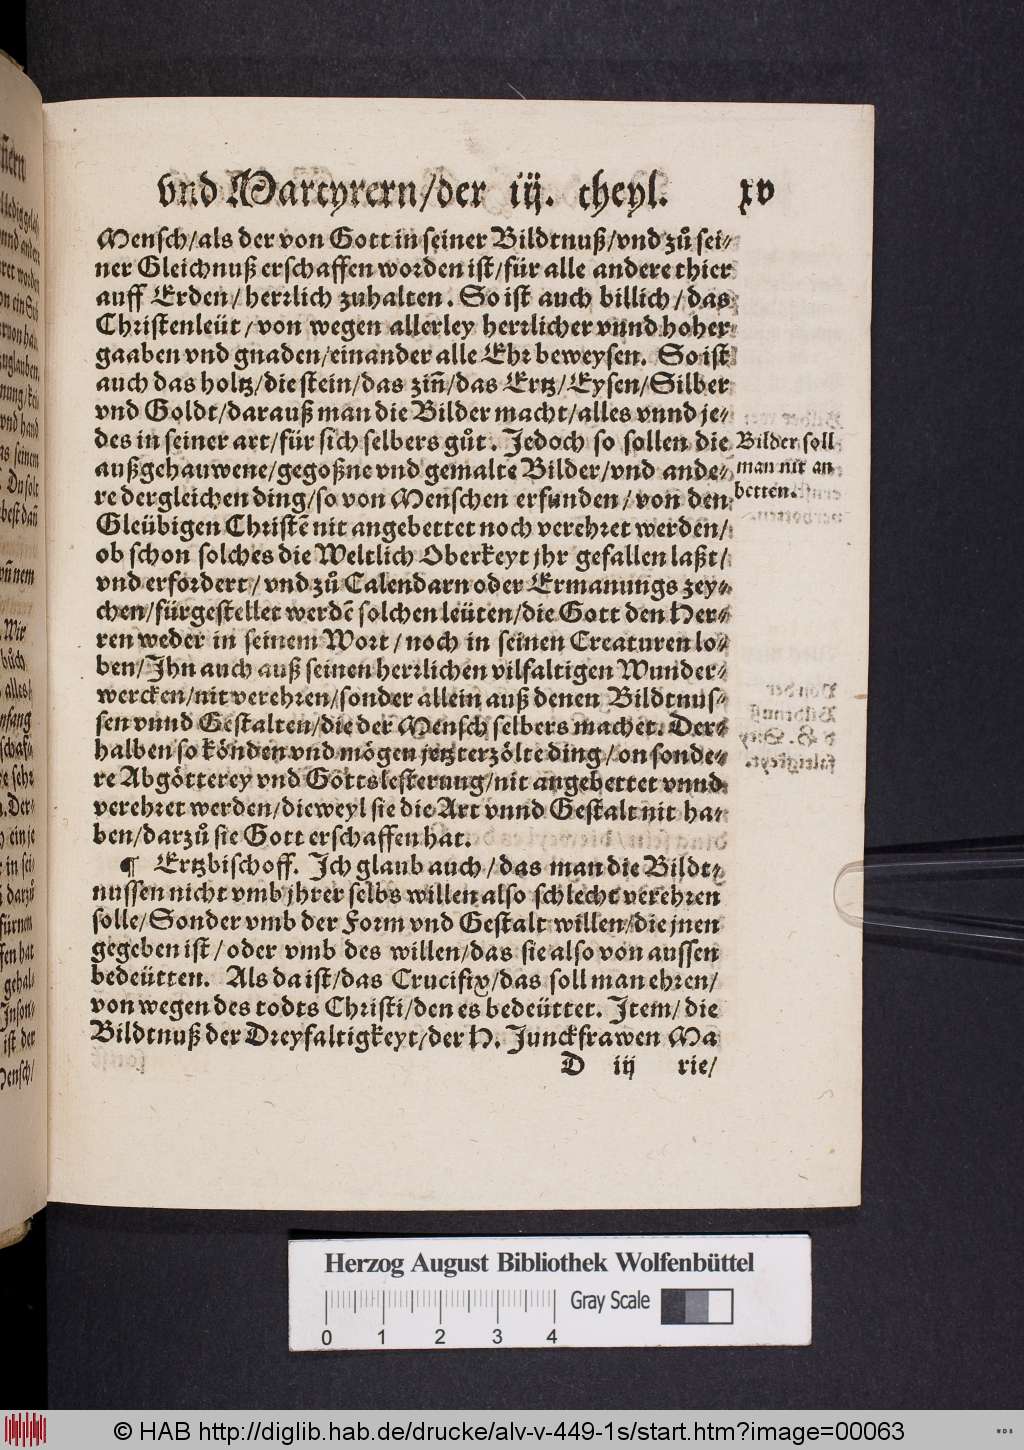 vnd Martyrern/der iij. theyl. xv
Mensch/als der von Gott in seiner Bildtnuß/vnd zů sei-
ner Gleichnuß erschaffen worden ist/für alle andere thier
auff Erden/herrlich zuhalten. So ist auch billich/das
Christenleüt/von wegen allerley herrlicher vnnd hoher
gaaben vnd gnaden/einander alle Ehr beweysen. So ist
auch das holtz/die stein/das ziñ/das Ertz/Eysen/Silber
vnd Goldt/darauß man die Bilder macht/alles vnnd je-
des in seiner art/für sich selbers gůt. Jedoch so sollen die
außgehauwene/gegoßne vnd gemalte Bilder/vnd ande-
re dergleichen ding/so von Menschen erfunden/von den
Gleübigen Christẽ nit angebettet noch verehret werden/
ob schon solches die Weltlich Oberkeyt jhr gefallen laßt/
vnd erfordert/vnd zů Calendarn oder Ermanungs zey-
chen/fürgestellet werdẽ solchen leüten/die Gott den Her-
ren weder in seinem Wort/noch in seinen Creaturen lo-
ben/Jhn auch auß seinen herrlichen vilfaltigen Wunder-
wercken/nit verehren/sonder allein auß denen Bildtnus-
sen vnnd Gestalten/die der Mensch selbers machet. Der-
halben so könden vnd mögen jetzt erzölte ding/on sonde-
re Abgötterey vnd Gottslesterung/nit angebettet vnnd
verehret werden/dieweyl sie die Art vnnd Gestalt nit ha-
ben/darzů sie Gott erschaffen hat.
¶ Ertzbischoff. Jch glaub auch/das man die Bildt-
nussen nicht vmb jhrer selbs willen also schlecht verehren
solle/Sonder vmb der Form vnd Gestalt willen/die jnen
gegeben ist/oder vmb des willen/das sie also von aussen
bedeütten. Als da ist/das Crucifix/das soll man ehren/
von wegen des todts Christi/den es bedeüttet. Jtem/die
Bildtnuß der Dreyfaltigkeyt/der H. Junckfrawen Ma
D iij rie/
Bilder soll
man nit an
betten.
Herzog August Bibliothek Wolfenbüttel
Gray Scale
0 1 2 3 4
© HAB http://diglib.hab.de/drucke/alv-v-449-1s/start.htm?image=00063